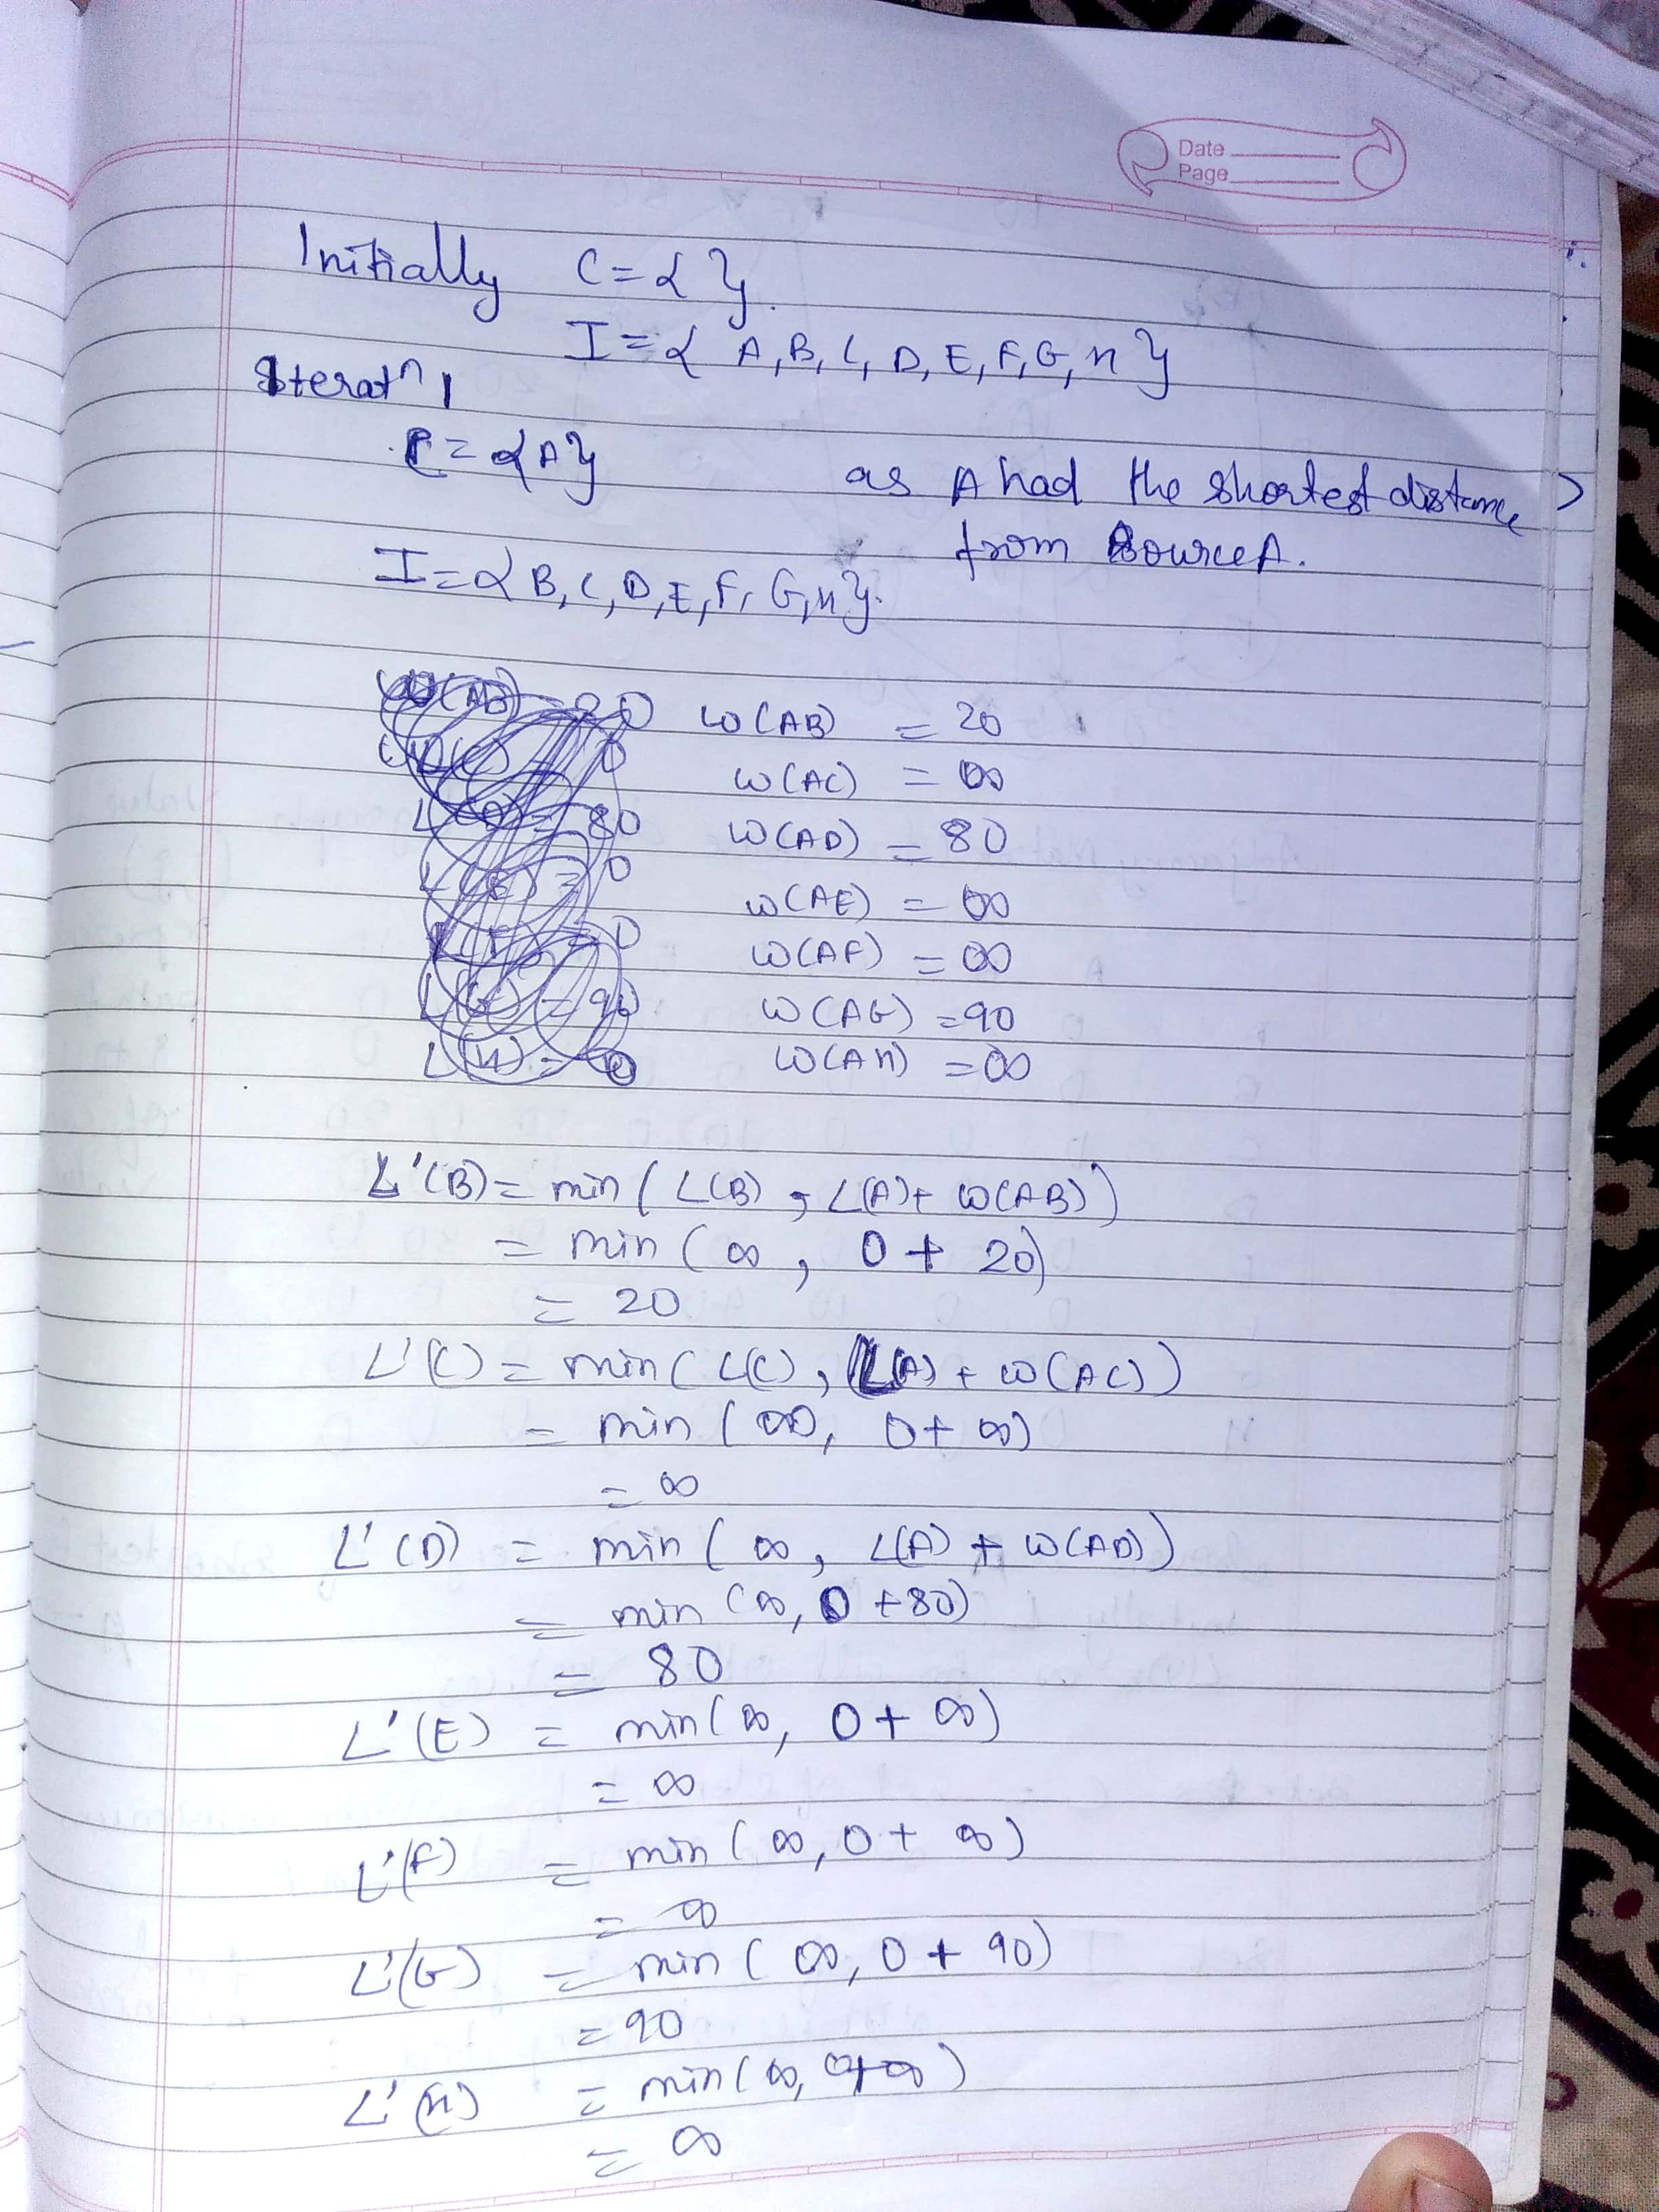 Date
Page
Initially C={ }.
I={ A, B, C, D, E, F, G, H }
Iteratn 1
C={A} as A had the shortest distance
from source A.
I={B, C, D, E, F, G, H}.
W(AB) = 20
W(AC) = ∞
L(D) = 80 W(AD) = 80
W(AE) = ∞
W(AF) = ∞
L(G) = 90 W(AG) = 90
L(H) = 0 W(AH) = ∞
L'(B) = min( L(B) , L(A)+ W(AB))
= min ( ∞ , 0 + 20)
= 20
L'(C) = min( L(C), L(A) + W(AC))
= min ( ∞, 0+ ∞)
= ∞
L'(D) = min ( ∞, L(A) + W(AD))
= min (∞, 0 +80)
= 80
L'(E) = min(∞, 0+ ∞)
= ∞
L'(F) = min ( ∞, 0+ ∞)
= ∞
L'(G) = min ( ∞, 0 + 90)
= 90
L'(H) = min( ∞, 0+∞)
= ∞